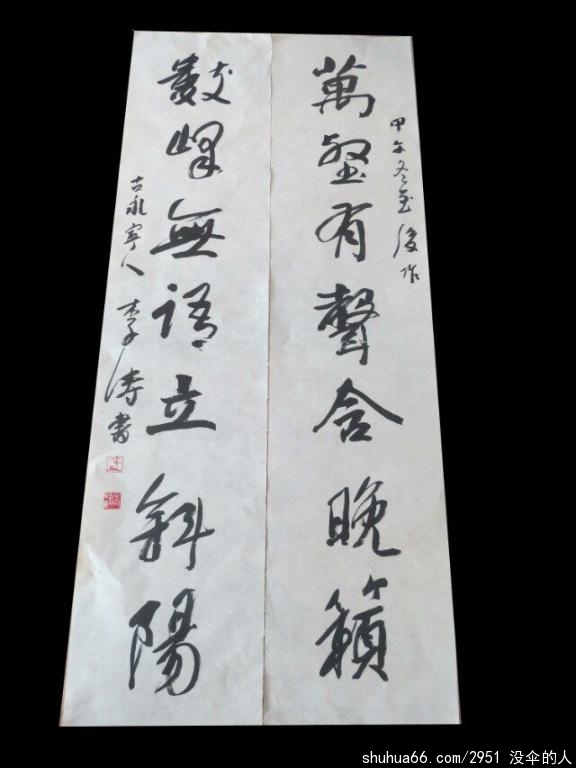 甲午冬至後作
萬壑有聲含晚籟
數峰無語立斜陽
古永寧人 李濤書
shuhua66.com/2951 没伞的人